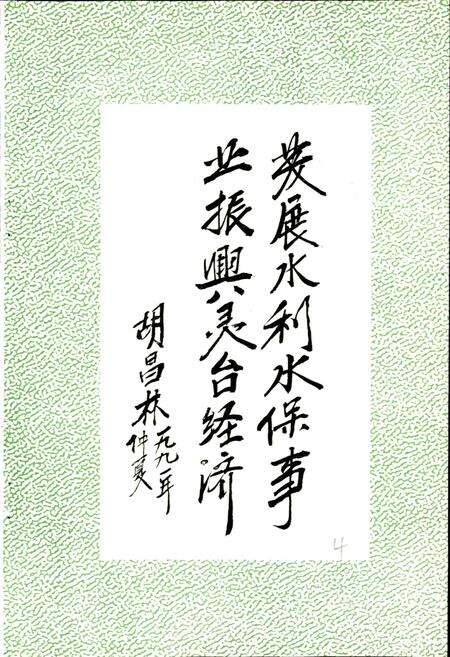 发展水利水保事
业振興灵台经济
胡昌林一九九一年
仲夏
4